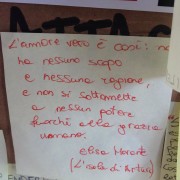 L'amore vero è così: no
ha nessuno scopo
e nessuna ragione,
e non si sottomette
a nessun potere
fuorché alla grazia
umana.
Elsa Morante
(L'isola di Arturo)